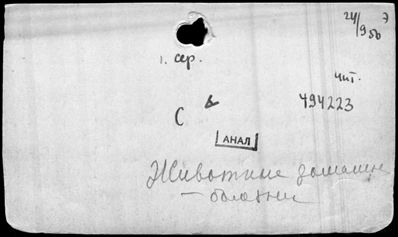 24/950 Э
1. сер.
чит.
494223
С
АНАЛ
Животные домашние
— болезни